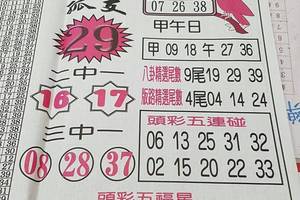 孤支
29
二中一
16 17
三中一
08 28 37
07 26 38
甲午日
甲 09 18 午 27 36
八卦精選尾數 9尾19 29 39
版路精選尾數 4尾04 14 24
頭彩五連碰
06 13 25 31 32
02 15 20 22 33
頭彩五福星